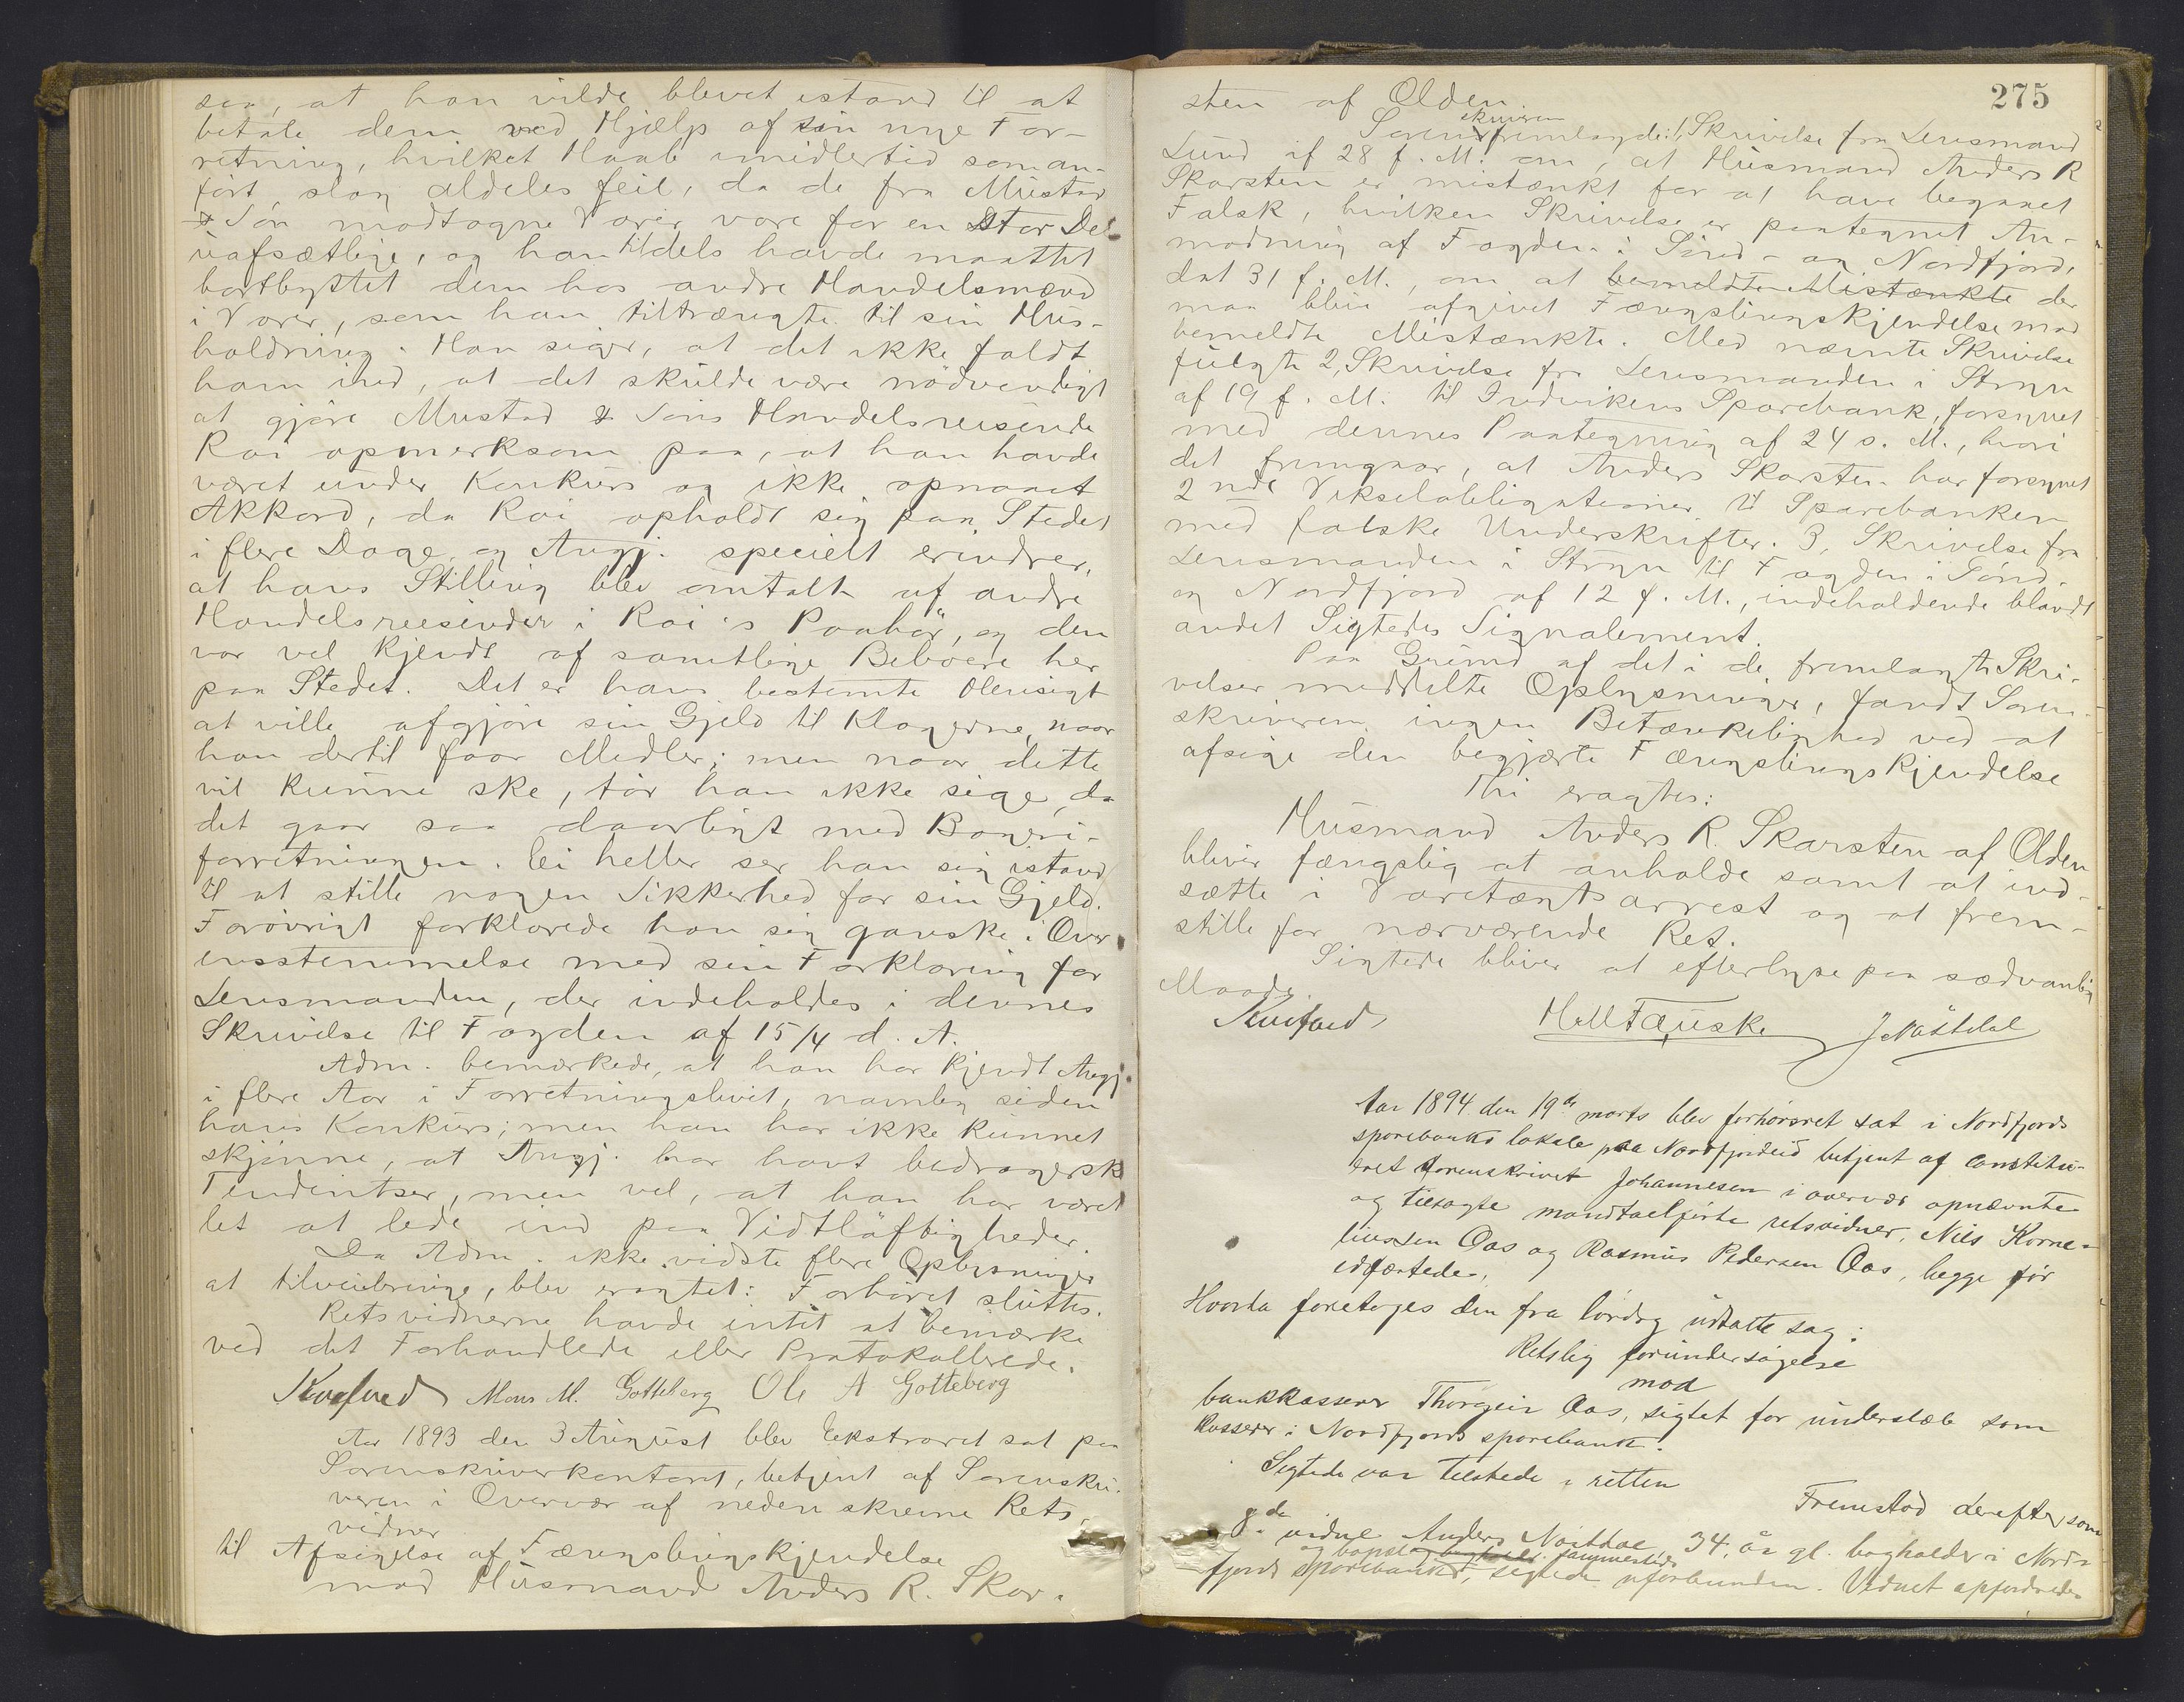 saa, at han vilde blevet istand til at
betale dem ved Hjælp af sin nye For-
retning, hvilket Haab imidlertid som an-
ført slog aldeles feil, da de fra Mustad
& Søn modtagne Varer vare for en stor Del
uafsættlige, og han tildels havde maattet
bortbyttet dem hos andre Handelsmænd
i Varer, som han tiltrængte til sin Hus-
holdning. Han siger, at det ikke faldt
ham ind, at det skulde være nødvendigt
at gjøre Mustad & Søns Handelsreisende
Roi opmerksom paa, at han havde
været under Konkurs og ikke opnaaet
Akkord, da Roi opholdt sig paa Stedet
i flere Dage, og Angj. specielt erindrer,
at hans Stilling blev omtalt af andre
Handelsreisender i Roi's Paahør, og den
var vel kjendt af samtlige Beboere her
paa Stedet. Det er hans bestemte Hensigt
at ville afgjøre sin Gjeld til Klagerne, naar
han dertil faar Midler; men naar dette
vil kunne ske, tør han ikke sige, da
det gaar saa daarligt med Bageri-
forretningen. Ei heller ser han sig istand
til at stille nogen Sikkerhed for sin Gjeld.
Forøvrigt forklarede han sig ganske i Over
ensstemmelse med sin Forklaring for
Lensmanden, der indeholdes i dennes
Skrivelse til Fogden af 15/4 d. A.
Adm. bemærkede, at han har kjendt Angj.
i flere Aar i Forretningslivet, navnlig siden
hans Konkurs; men han har ikke kunnet
skjønne, at Angj. har havt bedragersk
Tendintser, men vel, at han har været
let at lede ind paa Vidtløftigheder.
Da Adm. ikke vidste flere Oplysninger
at tilveiebringe, blev eragtet: Forhøret sluttes.
Retsvidnerne havde intet at bemærke
ved det Forhandlede eller Protokollerede.
Mons M. Gotteberg Ole A Gotteberg
Aar 1893 den 3 August blev Ekstraret sat paa
Sorenskriverkontoret, betjent af Sorenskri-
veren i Overvær af nedenskrevne Rets-
vidner
til Afsigelse af Fængslingskjendelse
mod Husmand Anders R. Skar-
275
sten af Olden.
skriveren
Sorenfremlagde: 1, Skrivelse fra Lensmand
Lund af 28 f. M. om, at Husmand Anders R
Skarsten er mistænkt for at have begaaet
Falsk, hvilken Skrivelse er paategnet An-
modning af Fogden i Sønd- og Nordfjord,
dat 31 f. M., om at bemeldte Mistænkte der
maa blive afgivet Fængslingskjendelse mod
bemeldte Mistænkte. Med nævnte Skrivelse
fulgte 2, Skrivelse fra Lensmanden i Stryn
af 19 f. M. til Indvikens Sparebank, forsynet
med dennes Paategning af 24 s. M., hvori
det fremgaar, at Anders Skarsten har forsynet
2nde Vekselobligationer til Sparebanken
med falske Underskrifter. 3, Skrivelse fra
Lensmanden i Stryn til Fogden i Sønd-
og Nordfjord af 12 f. M., indeholdende blandt
andet Sigtedes Signalement.
Paa Grund af det i de fremlagte Skri-
velser meddelte Oplysninger, fandt Soren-
skriveren ingen Betænkelighed ved at
afsige den begjærte Fængslingskjendelse
Thi eragtes:
Husmand Anders R. Skarsten af Olden
bliver fængslig at anholde samt at ind-
sætte i Varetægtsarrest og at frem-
stille for nærværende Ret.
Sigtede bliver at efterlyse paa sædvanlig
Maade.
J Nøstdal
Aar 1894 den 19de marts blev forhørsret sat i Nordfjords
sparebanks lokale paa Nordfjordeid betjent af constitu-
eret sorenskriver Johannesen i overvær opnævnte
og tilsagte mandtalførte retsvidner, Nils Korne-
liussen Aas og Rasmus Pedersen Aas, begge før
edfæstede.
Hvorda foretoges den fra lørdag udsatte sag:
Retslig forundersøgelse
mod
bankkasserer Thorgeir Aas, sigtet for underslæb som
kasserer i Nordfjords sparebank.
Sigtede var tilstede i retten
Fremstod derefter som
8de vidne Anders Nøstdal, 34 år gl. bogholder i Nord-
og bopæl sammesteds
fjords sparebank, sigtede uforbunden. Vidnet opfordredes